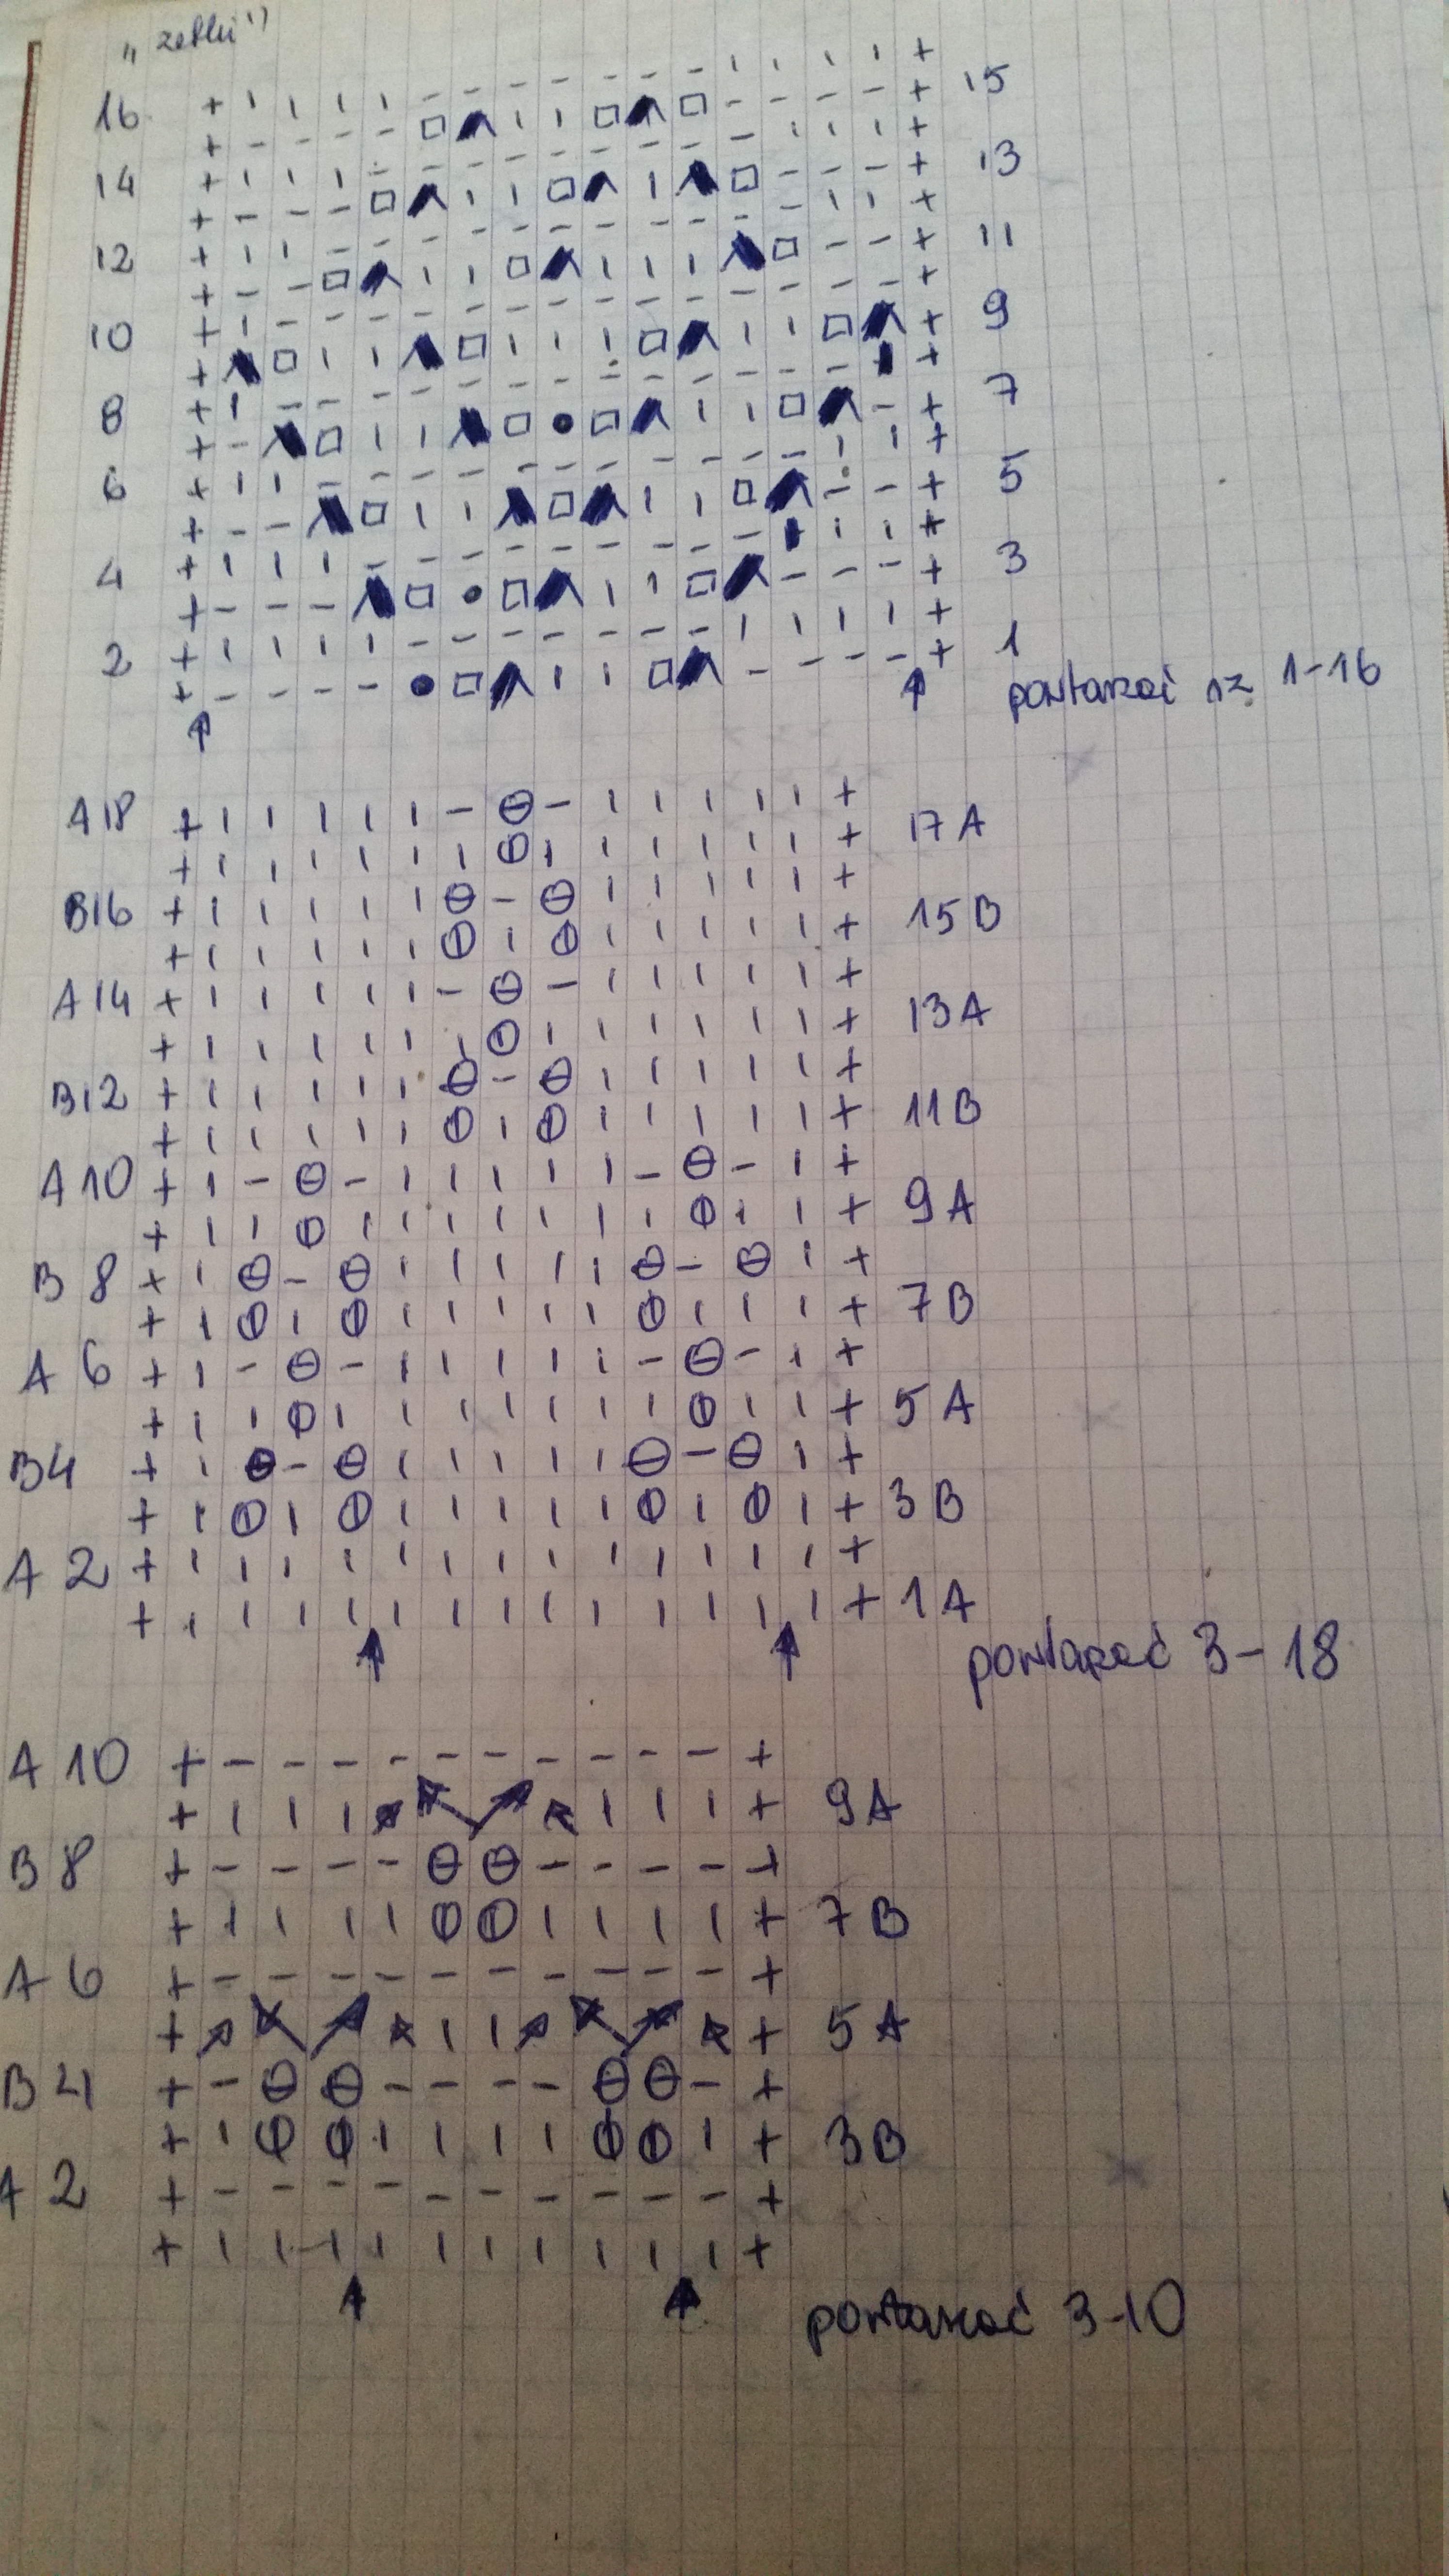 „zetki”
16 15
14 13
12 11
10 9
8 7
6 5
4 3
2 1
powtarzać rz. 1-16
A18 17A
B16 15B
A14 13A
B12 11B
A10 9A
B8 7B
A6 5A
B4 3B
A2 1A
powtarzać 3-18
A10 9A
B8 7B
A6 5A
B4 3B
A2
powtarzać 3-10